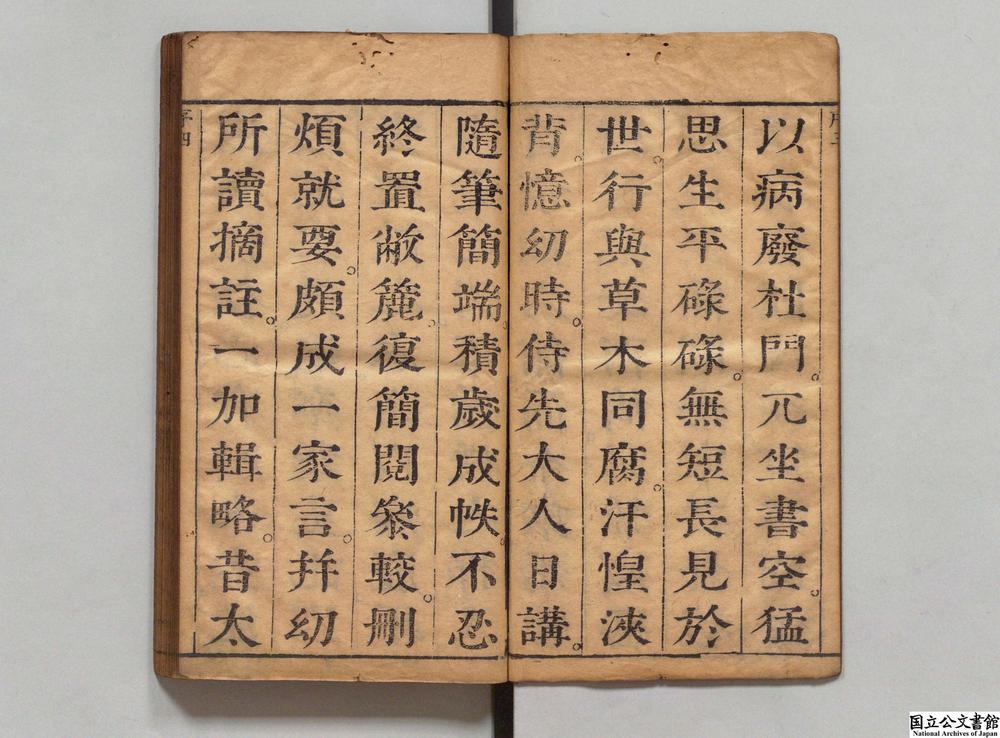 以病廢杜門。兀坐書空。猛
思生平碌碌。無短長見於
世。行與草木同腐。汗惶浹
背。憶㓜時。侍先大人日講。
隨筆簡端。積歲成帙。不忍
終置敝簏。復簡閱叅較。刪
煩就要。頗成一家言。幷㓜
所讀摘註。一加輯略。昔太
序四
国立公文書館
National Archives of Japan